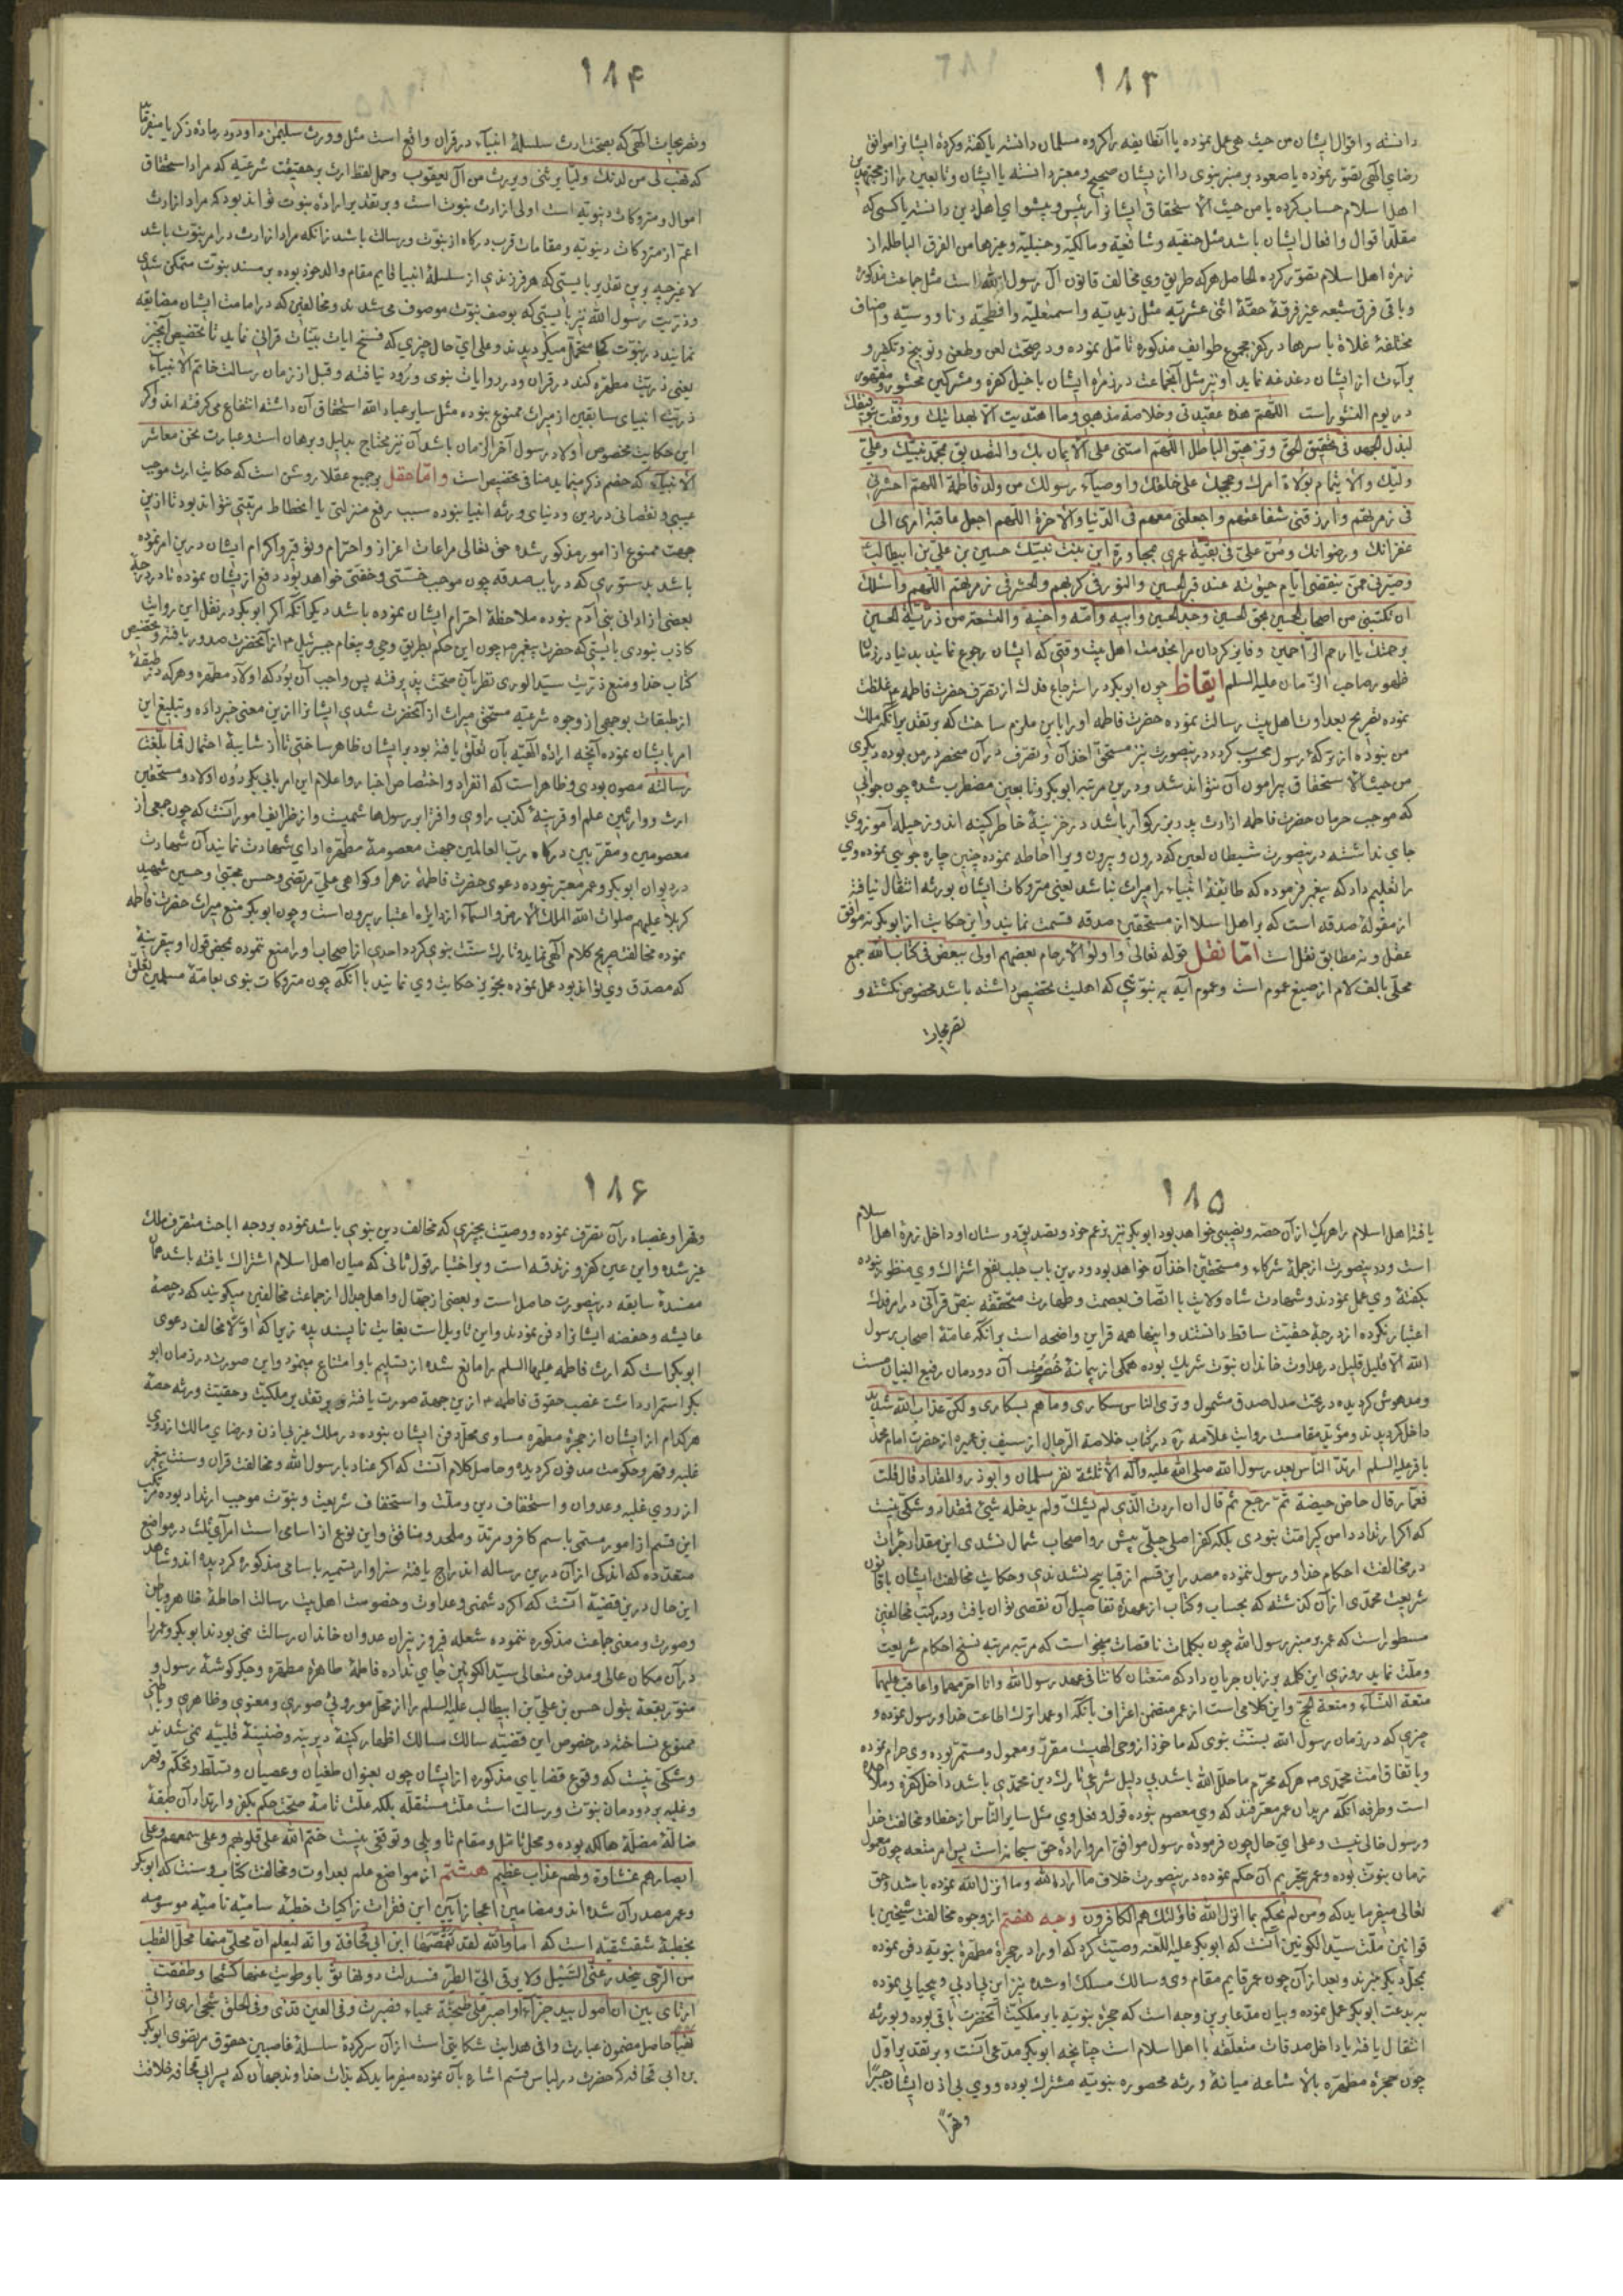 ۱۸۳
دانسته و اقوال ایشان من حیث هی عمل نموده یا آنطایفه را کروه مسلمان دانسته یا کفته و کردهٔ ایشانرا موافق
رضای الهی تصور نموده یا صعود بر منبر نبوی را از ایشان صحیح و معتبر دانسته یا ایشان و تابعین را از مجتهدین
اهل اسلام حساب کرده یا من حیث الاستحقاق ایشانرا رئیس و پیشوای اهل دین دانسته یا کسی که
مقلد اقوال و افعال ایشان باشد مثل حنفیه و شافعیه و مالکیه و حنبلیه و غیرها من الفرق الباطله از
زمرهٔ اهل اسلام تصور کرده الحاصل هر که طریق وی مخالف قانون آل رسول الله است مثل جماعت مذکوره
و باقی فرق شیعه غیر فرقهٔ حقهٔ اثنی عشریه مثل زیدیه و اسمعیلیه و افطحیه و ناووسیه و اصناف
مختلفهٔ غلاة باسرها در کفر مجموع طوایف مذکوره تامل نموده و در صحت لعن و طعن و توبیخ و تکفیر و
برآءت از ایشان دغدغه نماید او نیز مثل آنجماعت در زمرهٔ ایشان با خیل کفره و مشرکین محشور و مقهور
در یوم النشور است اللهم هذه عقیدتی و خلاصة مذهبی و ما اهتدیت الا بهدایتك و وفقت بتوفیقك
لبذل الجهد فی تحقیق الحق و تزهیق الباطل اللهم امتنی علی الایمان بك و التصدیق بمحمد نبیك و علی
ولیك و الایتمام بولاة امرك و حججك علی خلقك و اوصیآء رسولك من ولد فاطمة اللهم احشرنی
فی زمرتهم و ارزقنی شفاعتهم و اجعلنی معهم فی الدنیا و الآخرة اللهم اجعل عاقبة امری الی
غفرانك و رضوانك و من علی فی بقیة عمری بمجاورة ابن بنت نبیك حسین بن علی بن ابیطالب
و صیرنی ممن ینقضی ایام حیوته عند قبر الحسین و النور فی کربهم و الحشر فی زمرتهم اللهم و اسئلك
ان تکتبنی من اصحاب الحسین بحق الحسین و جد الحسین و ابیه و امه و اخیه و التسعة من ذریة الحسین
برحمتك یا ارحم الراحمین و فایز کردان مرا بخدمت اهل بیت وقتی که ایشان رجوع نمایند بدنیا در زمان
ظهور صاحب الزمان علیه السلم ایقاظ چون ابوبکر در استرجاع فدك از تصرف حضرت فاطمه ع غلظت
نموده تصریح بعداوت اهل بیت رسالت نموده حضرت فاطمه او را باین ملزم ساخت که بر تقدیر آنکه ملك
من نبوده از ترکهٔ رسول محسوب کردد درینصورت نیز مستحق اخذ آن و تصرف در آن منحصر در من بوده دیکری
من حیث الاستحقاق پیرامون آن نتواند شد و درین مرتبه ابوبکر و تابعین مضطرب شده چون جوابی
که موجب حرمان حضرت فاطمه از ارث پدر بزرکوار باشد در خزینهٔ خاطر کینه اندوز حیله آموز وی
جای نداشته درینصورت شیطان لعین که درون و بیرون ویرا احاطه نموده چنین چاره جویی نموده وی
را تعلیم داد که پیغمبر فرموده که طائفهٔ انبیاء را میراث نباشد یعنی متروکات ایشان بورثه انتقال نیافته
از مقولهٔ صدقه است که بر اهل اسلام از مستحقین صدقه قسمت نمایند و این حکایت از ابوبکر نه موافق
عقل و نه مطابق نقل است اما نقل قوله تعالی و اولوا الارحام بعضهم اولی ببعض فی کتاب الله جمع
محلی بالف لام از صیغ عموم است و عموم آیه به نبوتی که اهلیت تخصیص داشته باشد مخصوص نکشته و
تصریحات
۱۸۴
و تصریحات الهی که بصحت ارث سلسلهٔ انبیآء در قران واقع است مثل و ورث سلیمن داود و در مادهٔ ذکریا میفرماید
که فهب لی من لدنك ولیا یرثنی و یرث من آل یعقوب و حمل لفظ ارث بر حقیقت شرعیه که مراد استحقاق
اموال و متروکات دنیویه است اولی از ارث نبوت است و بر تقدیر ارادهٔ نبوت تواند بود که مراد از ارث
اعم از متروکات دنیویه و مقامات قرب درکاه از نبوت و رسالت باشد نه آنکه مراد از ارث در امر نبوت باشد
لا غیر چه برین تقدیر بایستی که هر فرزندی از سلسلهٔ انبیا قایم مقام والد خود بوده بر مسند نبوت متمکن شدی
و ذریت رسول الله نیز بایستی که بوصف نبوت موصوف می شدند و مخالفین که در امامت ایشان مضایقه
نمایند در نبوت کجا متحمل میکردیدند و علی ای حال چیزی که فسخ ایات بینات قرانی نماید تا تخصیص آنچیز
یعنی ذریت مطهره کند در قران و در روایات نبوی ورود نیافته و قبل از زمان رسالت خاتم الانبیآء
ذریت انبیای سابقین از میراث ممنوع نبوده مثل سایر عباد الله استحقاق آن داشته انتفاع می کرفته اند و اکر
این حکایت مخصوص اولاد رسول آخر الزمان باشد آن نیز محتاج بدلیل و برهان است و عبارت نحن معاشر
الانبیآء که خصم ذکر مینماید منافی تخصیص است و اما عقل بر جمیع عقلا روشن است که حکایت ارث موجب
عیبی و نقصانی در دین و دنیای ورثه انبیا نبوده سبب رفع منزلتی یا انحطاط مرتبتی نتواند بود تا ازین
جهت ممنوع از امور مذکور شده حق تعالی مراعات اعزاز و احترام و توقیر و اکرام ایشان درین امر نموده
باشد بدستوری که در باب صدقه چون موجب خستی و خفتی خواهد بود دفع از ایشان نموده تا در درجهٔ
بعضی از ادانی بنی آدم نبوده ملاحظهٔ احترام ایشان نموده باشد دیکر آنکه اکر ابوبکر در نقل این روایت
کاذب نبودی بایستی که حضرت پیغمبر ص چون این حکم بطریق وحی و پیغام جبرئیل ع از آنحضرت صدور یافته و تخصیص
کتاب خدا و منع ذریت سید الوری نظر بآن صحت پذیرفته پس واجب آن بود که اولاد مطهره و هر که در طبقهٔ
از طبقات بوجهی از وجوه شرعیه مستحق میراث از آنحضرت شدی ایشانرا ازین معنی خبر داده و تبلیغ این
امر بایشان نموده آنچه ارادهٔ الهیه بآن تعلق یافته بود بر ایشان ظاهر ساختی تا از شایبهٔ احتمال فما بلغت
رسالته مصون بودی و ظاهر است که انفراد و اختصاص اخبار و اعلام این امر بابی بکر دون اولاد و مستحقین
ارث و وارثین علم او قرینهٔ کذب راوی و افترا بر رسول هاشمیست و از ظرایف امور آنست که چون جمعی از
معصومین و مقربین درکاه رب العالمین جهت معصومهٔ مطهره ادای شهادت نمایند آن شهادت
در دیوان ابوبکر و عمر معتبر نبوده دعوی حضرت فاطمهٔ زهرا و کواهی علی مرتضی و حسن مجتبی و حسین شهید
کربلا علیهم صلوات الله الملك الارض و السمآء از دایرهٔ اعتبار بیرون است و چون ابوبکر منع میراث حضرت فاطمه
نموده مخالفت صریح کلام الهی نماید و تارك سنت نبوی کردد احدی از اصحاب او را منع ننموده بمحض قول او بیقرینهٔ
که مصدق وی تواند بود عمل نموده تجویز حکایت وی نمایند با آنکه چون متروکات نبوی بعامهٔ مسلمین تعلق
۱۸۵
یافته اهل اسلام را هریك از آن حصه و نصیبی خواهد بود ابوبکر نیز بزعم خود و تصدیق دوستان او داخل زمرهٔ اهل اسلام
است و درینصورت از جملهٔ شرکاء و مستحقین اخذ آن خواهد بود و درین باب جلب نفع اشتراك وی منظور نبوده
بکفتهٔ وی عمل نمودند و شهادت شاه ولایت با اتصاف بعصمت و طهارت متحققه بنص قرآنی در امر فدك
اعتبار نکرده از درجهٔ حقیت ساقط دانستند و اینها همه قراین واضحه است بر آنکه عامهٔ اصحاب رسول
الله الا قلیل قلیل در عداوت خاندان نبوت شریك بوده همکی از پیمانهٔ خصومت آن دودمان رفیع البنیان مست
و مدهوش کردیده در تحت مدلول صدق مشمول و تری الناس سکاری و ما هم بسکاری و لکن عذاب الله شدید
داخل کردیدند و مؤید مقامست روایت علامه ره در کتاب خلاصة الرجال از سیف بن عمیره از حضرت امام محمد
باقر علیه السلم ارتد الناس بعد رسول الله صلی الله علیه و آله الا ثلثة نفر سلمان و ابوذر و المقداد قال قلت
فعمار قال حاض حیضة ثم رجع ثم قال ان اردت الذی لم یشك و لم یدخله شیئ فمقداد و شکی نیست
که اکر ارتداد دامن کیر امت نبودی بلکه کفر اصلی جبلی پیش رو اصحاب شمال نشدی این مقدار جرأت
در مخالفت احکام خدا و رسول نموده مصدر این قسم از قبایح نشدندی و حکایت مخالفت ایشان با قانون
شریعت محمدی از آن کذشته که بحساب و کتاب از عهدهٔ تفاصیل آن تفصی توان یافت و در کتب مخالفین
مسطور است که عمر بر منبر رسول الله چون بکلمات ناقصات میخواست که مرتبه مرتبه نسخ احکام شریعت
و ملت نماید روزی این کلمه بر زبان جریان داد که متعتان کانتا فی عهد رسول الله و انا احرمهما و اعاقب علیهما
متعة النسآء و متعة الحج و این کلامی است از عمر متضمن اعتراف بآنکه او عمدا ترك اطاعت خدا و رسول نموده و
چیزی که در زمان رسول الله بسنت نبوی که ماخوذ از وحی الهیست مقرر و معمول و مستمر بوده وی حرام نموده
و باتفاق امت محمدی ص هر که محرم ما حلل الله باشد بی دلیل شرعی تارك دین محمدی باشد داخل کفره و ملاحده
است و طرفه آنکه مریدان عمر معترفند که وی معصوم نبوده قول و فعل وی مثل سایر الناس از خطا و مخالفت خدا
و رسول خالی نیست و علی ای حال چون فرمودهٔ رسول موافق امر و ارادهٔ حق سبحانه است پس امر متعه چون معمول
زمان نبوت بوده و عمر بتحریم آن حکم نموده درینصورت خلاف ما اراد الله و ما انزل الله نموده باشد و حق
تعالی میفرماید که و من لم یحکم بما انزل الله فاولئك هم الکافرون وجه هفتم از وجوه مخالفت شیخین با
قوانین ملت سید الکونین آنست که ابوبکر علیه اللعنه وصیت کرد که او را در حجرهٔ مطهرهٔ نبویه دفن نموده
بمحل دیکر نبرند و بعد از آن چون عمر قایم مقام وی و سالك مسلك او شده نیز این بی ادبی و بیحیایی نموده
به بدعت ابوبکر عمل نموده و بیان مدعا برین وجه است که حجرهٔ نبویه یا بر ملکیت آنحضرت باقی بوده و بورثه
انتقال یافته یا داخل صدقات متعلقه با اهل اسلام است چنانچه ابوبکر مدعی آنست و بر تقدیر اول
چون حجرهٔ مطهره بالاشاعه میانهٔ ورثه محصوره نبویه مشترك بوده و وی بی اذن ایشان جبرا
و قهرا
۱۸۶
و قهرا و غصبا در آن تصرف نموده و وصیت بچیزی که مخالف دین نبوی باشد نموده بر وجه اباحت متصرف ملك
غیر شده و این عین کفر و زندقه است و بر اختیار قول ثانی که میان اهل اسلام اشتراك یافته باشد همان
مفسدهٔ سابقه درینصورت حاصل است و بعضی از جهال و اهل جدال از جماعت مخالفین میکویند که در حصهٔ
عایشه و حفصه ایشانرا دفن نمودند و این تاویل است بغایت ناپسندیده زیرا که اولا مخالف دعوی
ابوبکر است که ارث فاطمه علیها السلم را مانع شده از تسلیم با و امتناع مینمود و این صورت در زمان ابو
بکر استمرار داشت غصب حقوق فاطمه ع ازین جهة صورت یافته و بر تقدیر ملکیت و حقیت ورثه حصهٔ
هر کدام از ایشان از حجرهٔ مطهره مساوی محل دفن ایشان نبوده در ملك غیر بی اذن و رضای مالك از روی
غلبه و قهر و حکومت مدفون کردیده و حاصل کلام آنست که اکر عناد با رسول الله و مخالفت قران و سنت پیغمبر
از روی غلبه و عدوان و استخفاف دین و ملت و استحقاف شریعت و نبوت موجب ارتداد بوده مرتکب
این قسم از امور مسمی باسم کافر و مرتد و ملحد و منافق و این نوع از اسامی است امر آی‌نك در مواضع
متعدده که اندکی از آن درین رساله اندراج یافته سزاوار تسمیه باسامی مذکوره کردیده اند و شاهد
این حال درین قضیه آنست که اکر دشمنی و عداوت و خصومت اهل بیت رسالت احاطهٔ ظاهر و باطن
و صورت و معنی جماعت مذکوره ننموده شعله فروز نیران عدوان خاندان رسالت نمی بودند ابوبکر و عمر را
در آن مکان عالی و مدفن متعالی سید الکونین جای نداده فاطمهٔ طاهرهٔ مطهره و جکر کوشهٔ رسول و
منور بقعهٔ بتول حسن بن علی بن ابیطالب علیه السلم را از محل موروثی صوری و معنوی و ظاهری و باطنی
ممنوع نساخته در خصوص این قضیه سالك مسالك اظهار کینهٔ دیرینه و ضغینهٔ قلبیه نمی شدند
و شکی نیست که وقوع قضایای مذکوره از ایشان چون بعنوان طغیان و عصیان و تسلط و تحکم و قهر
و غلبه بر دودمان نبوت و رسالت است علت مستقله بلکه علت تامهٔ صحت حکم بکفر و ارتداد آن طبقهٔ
ضالهٔ مضلهٔ هالکه بوده و محل تامل و مقام تاویلی و توقفی نیست ختم الله علی قلوبهم و علی سمعهم و علی
ابصارهم غشاوة و لهم عذاب عظیم هشتم از مواضع علم بعداوت و مخالفت کتاب و سنت که ابوبکر
و عمر مصدر آن شده اند و مضامین اعجاز آیین این فقرات زاکیات خطبه سامیه نامیه موسومه
بخطبهٔ شقشقیه است که اما و الله لقد تقمصها ابن ابی قحافة و انه لیعلم ان محلی منها محل القطب
من الرحی ینحدر عنی السیل و لا یرقی الی الطیر فسدلت دونها ثوبا و طویت عنها کشحا و طفقت
ارتای بین ان اصول بید جذآء او اصبر علی طخیة عمیاء فصبرت و فی العین قذی و فی الحلق شجی اری تراثی
نهبا حاصل مضمون عبارت وافی هدایت شکایتی است از آن سرکردهٔ سلسلهٔ غاصبین حقوق مرتضوی ابوبکر
بن ابی قحافه که حضرت در لباس قسم اشاره بآن نموده میفرماید که بذات خداوند جهان که پسر ابی قحافه خلافت